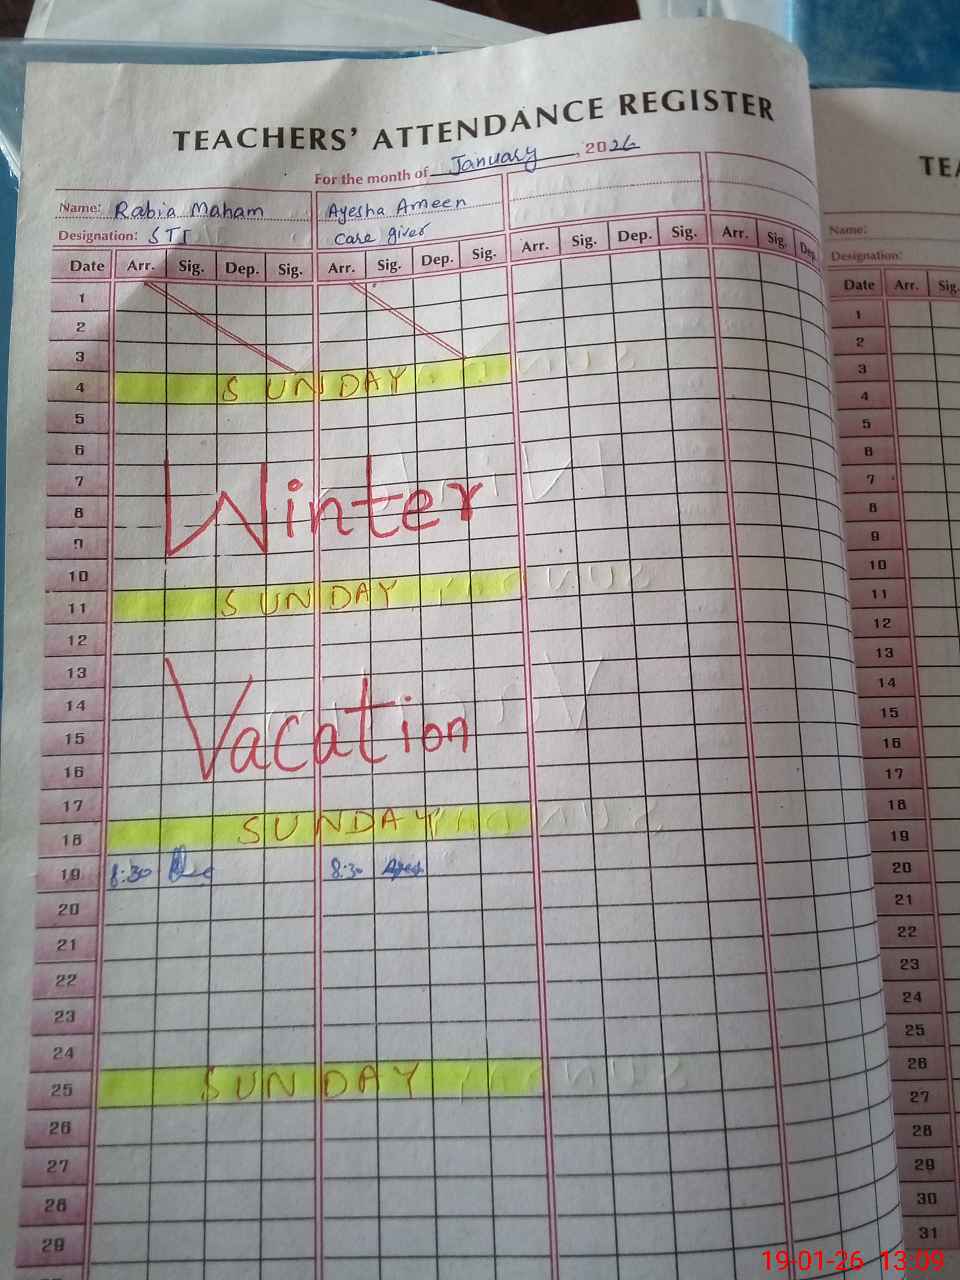 TEACHERS' ATTENDANCE REGISTER
For the month of January, 2026
Name: Rabia Maham Ayesha Ameen
Designation: STI Care giver
Date Arr. Sig. Dep. Sig. Arr. Sig. Dep. Sig. Arr. Sig. Dep. Sig. Arr. Sig. Dep.
1
2
3
4 SUNDAY
5
6
7 Winter
8
9
10
11 SUNDAY
12
13
14 Vacation
15
16
17
18 SUNDAY
19 8:30 8:30
20
21
22
23
24
25 SUNDAY
26
27
28
29
TEA
Name:
Designation:
Date Arr. Sig.
1
2
3
4
5
6
7
8
9
10
11
12
13
14
15
16
17
18
19
20
21
22
23
24
25
26
27
28
29
30
31
19-01-26 13:09